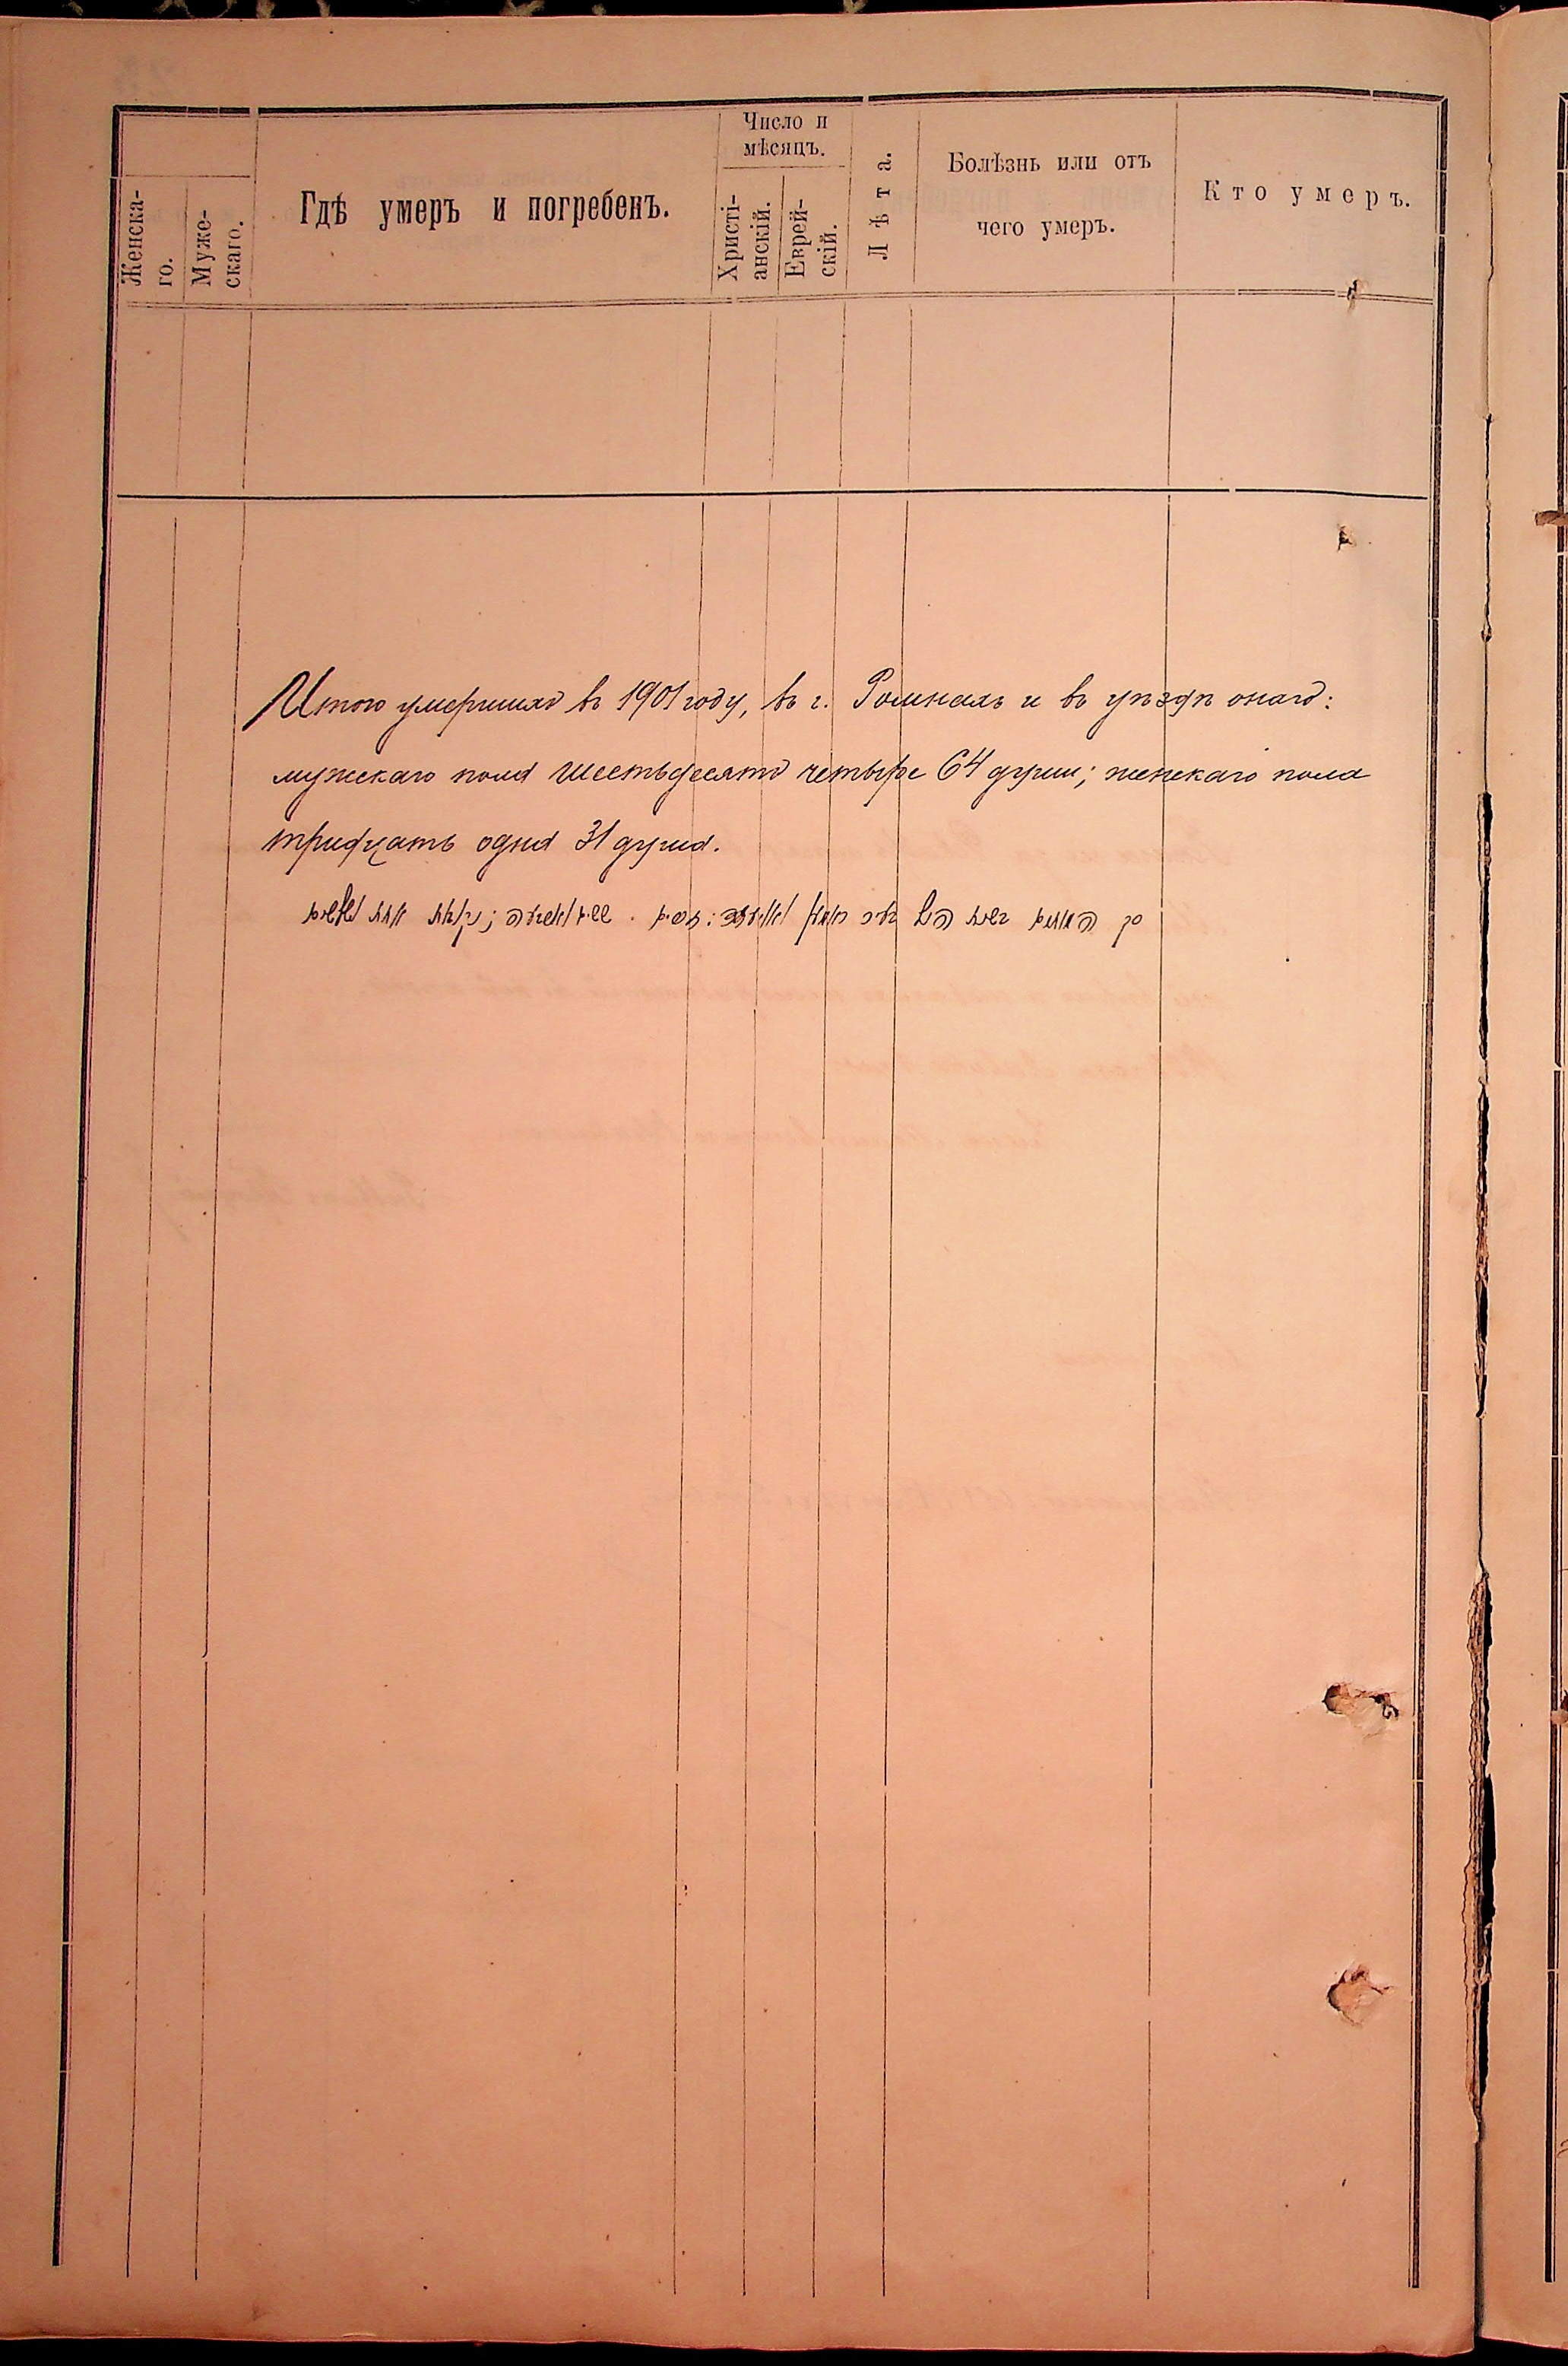 Число и
мѣсяцъ.
Женска-
го.
Муже-
скаго.
Гдѣ умеръ и погребенъ.
Христі-
анскій.
Еврей-
скій.
Лѣта.
Болѣзнь или отъ
чего умеръ.
Кто умеръ.
Итого умершихъ въ 1901 году, въ г. Ромнахъ и въ уѣздѣ онаго:
мужскаго пола шестьдесятъ четыре 64 души; женскаго пола
тридцать одна 31 душа.